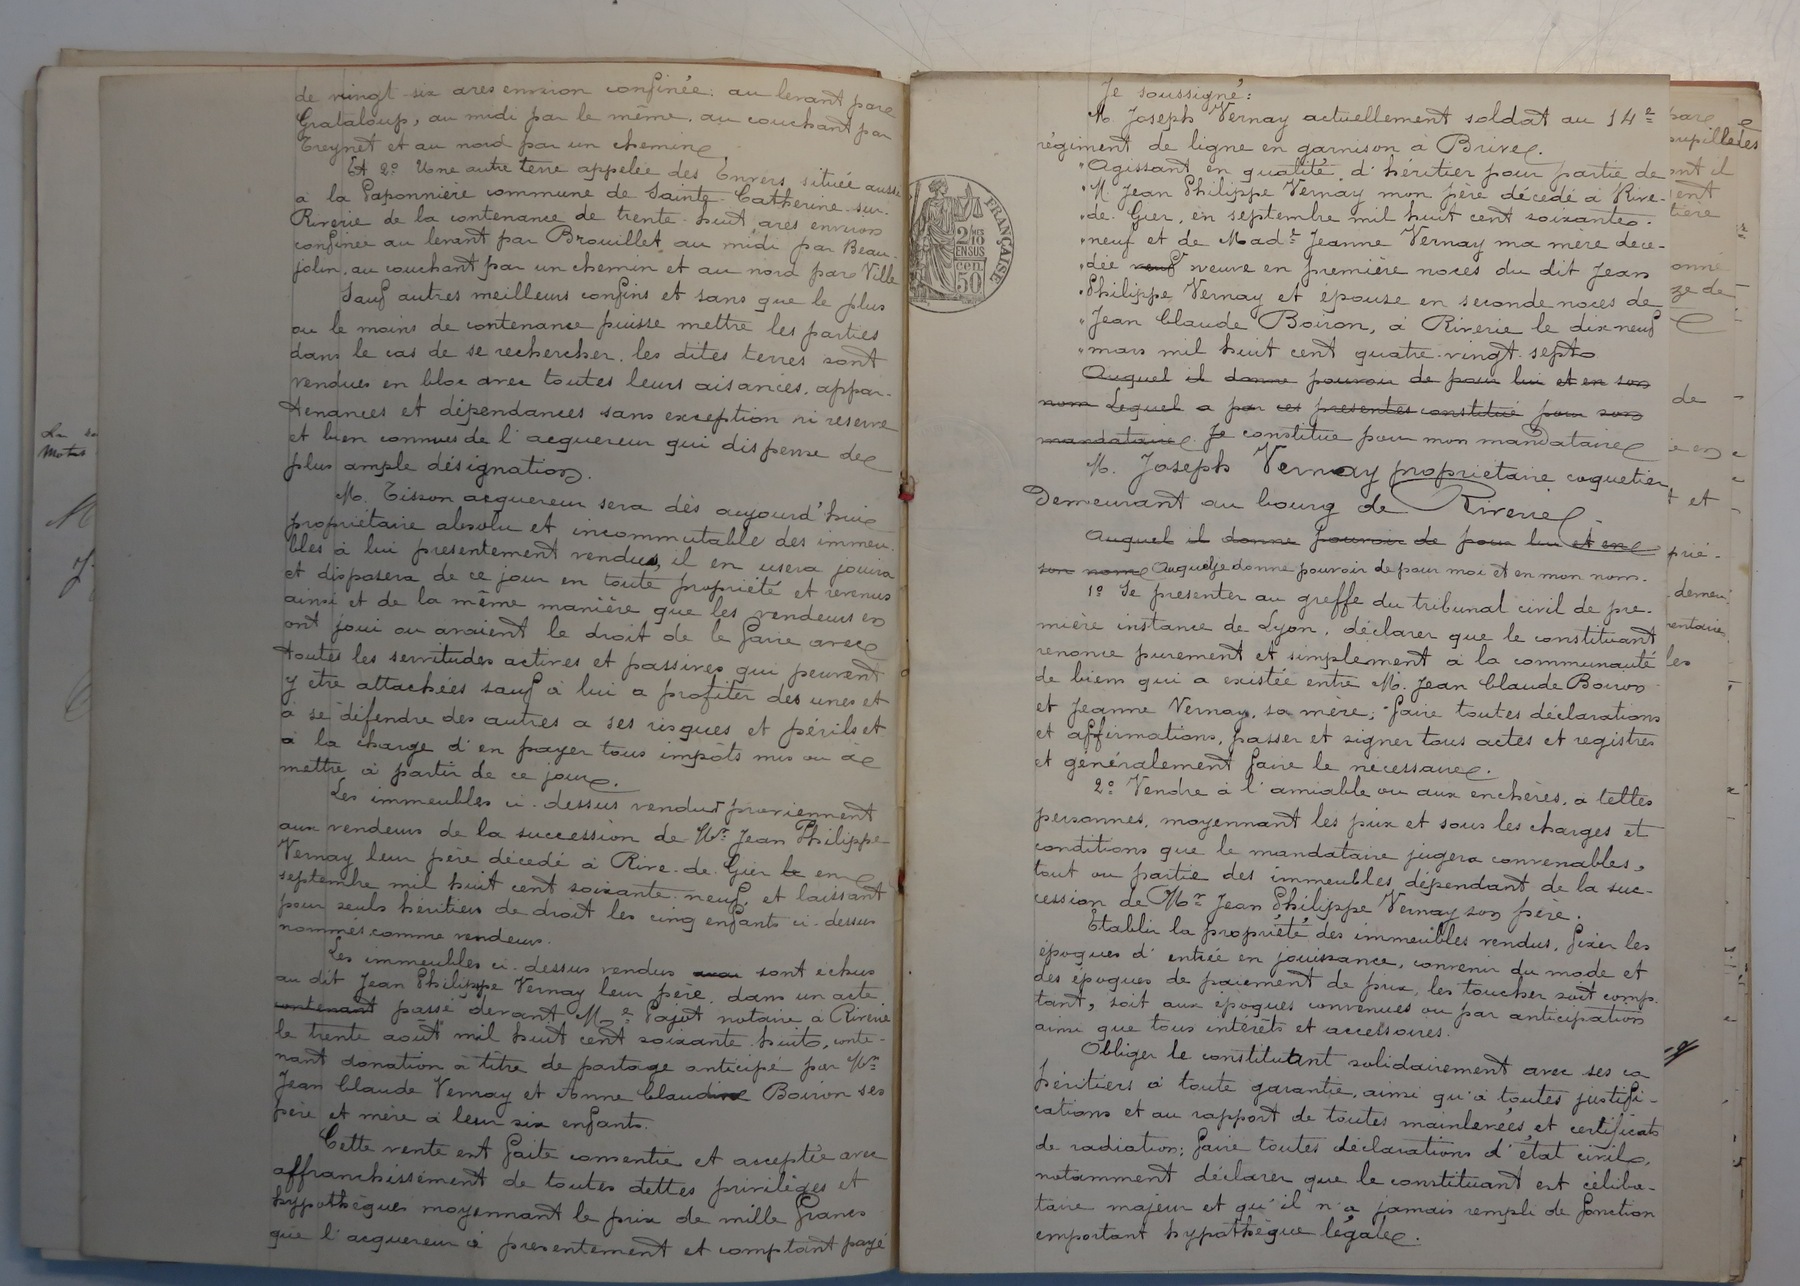 de vingt-six ares environ confinée: au levant par
Grataloup, au midi par le même. au couchant par
Treynet et au nord par un chemin
Et 2º Une autre terre appelée des Envers située aussi
à la Paponnière commune de Sainte-Catherine-sur-
Riverie de la contenance de trente-huit ares environ
confinée au levant par Brouillet au midi par Beau-
jolin, au couchant par un chemin et au nord par Ville
Sauf autres meilleurs confins et sans que le plus
ou le moins de contenance puisse mettre les parties
dans le cas de se rechercher. les dites terres sont
vendues en bloc avec toutes leurs aisances, appar-
tenances et dépendances sans exception ni reserve
et bien connues de l'acquereur qui dispense de
plus ample désignation.
M. Tisson acquereur sera dès aujourd'hui
propriétaire absolu et incommutable des immeu-
bles à lui presentement vendus, il en usera jouira
et disposera de ce jour en toute propriété et revenus
ainsi et de la même manière que les vendeurs en
ont joui ou avaient le droit de le faire avec
toutes les servitudes actives et passives qui peuvent
y etre attachées sauf à lui a profiter des unes et
à se défendre des autres a ses risques et périls et
à la charge d'en payer tous impôts mis ou à
mettre à partir de ce jour.
Les immeubles ci-dessus vendus proviennent
aux vendeurs de la succession de Mr Jean Philippe
Vernay leur père décédé à Rive-de-Gier le en
septembre mil huit cent soixante-neuf, et laissant
pour seuls héritiers de droit les cinq enfants ci-dessus
nommés comme vendeurs.
Les immeubles ci-dessus vendus sont échus
au dit Jean Philippe Vernay leur père, dans un acte
contenant passé devant Me Pajot notaire à Riverie
le trente août mil huit cent soixante-huit, conte-
nant donation à titre de partage anticipé par Mr
Jean Claude Vernay et Anne Claudine Boiron ses
père et mère à leur six enfants.
Cette vente est faite consentie et acceptée avec
affranchissement de toutes dettes privilèges et
hypothèques moyennant le prix de mille francs
que l'acquereur à presentement et comptant payé
FRANÇAISE
2/10
EN SUS
50 cen
Je soussigné:
M. Joseph Vernay actuellement soldat au 14e
régiment de ligne en garnison à Brive.
"Agissant en qualité d'héritier pour partie de
"M. Jean Philippe Vernay mon père décédé à Rive-
"de-Gier, en septembre mil huit cent soixante-
"neuf et de Made Jeanne Vernay ma mère décé-
"dée veuf veuve en première noces du dit Jean
"Philippe Vernay et épouse en seconde noces de
"Jean Claude Boiron, à Riverie le dix neuf
"mars mil huit cent quatre-vingt-sept
Auquel il donne pouvoir de pour lui et en son
nom Lequel a par ces presentes constitué pour son
mandataire. Je constitue pour mon mandataire
M. Joseph Vernay propriétaire coquetier
Demeurant au bourg de Riverie
Auquel il donne pouvoir de pour lui et en
son nom Auquel je donne pouvoir de pour moi et en mon nom.
1º Se presenter au greffe du tribunal civil de pre-
mière instance de Lyon, déclarer que le constituant
renonce purement et simplement à la communauté
de biens qui a existée entre M. Jean Claude Boiron
et Jeanne Vernay, sa mère; faire toutes déclarations
et affirmations, passer et signer tous actes et registres
et généralement faire le nécessaire.
2º Vendre à l'amiable ou aux enchères, à telles
personnes, moyennant les prix et sous les charges et
conditions que le mandataire jugera convenables,
tout ou partie des immeubles dépendant de la suc-
cession de Mr Jean Philippe Vernay son père.
Etablir la propriété des immeubles vendus, fixer les
époques d'entrée en jouissance, convenir du mode et
des époques de paiement de prix, les toucher soit comp-
tant, soit aux époques convenues ou par anticipation
ainsi que tous intérêts et accessoires.
Obliger le constituant solidairement avec ses co
héritiers à toute garantie, ainsi qu'à toutes justifi-
cations et au rapport de toutes mainlevées et certificats
de radiation; faire toutes déclarations d'état civil,
notamment déclarer que le constituant est céliba-
taire majeur et qu'il n'a jamais rempli de fonction
emportant hypothèque légale.